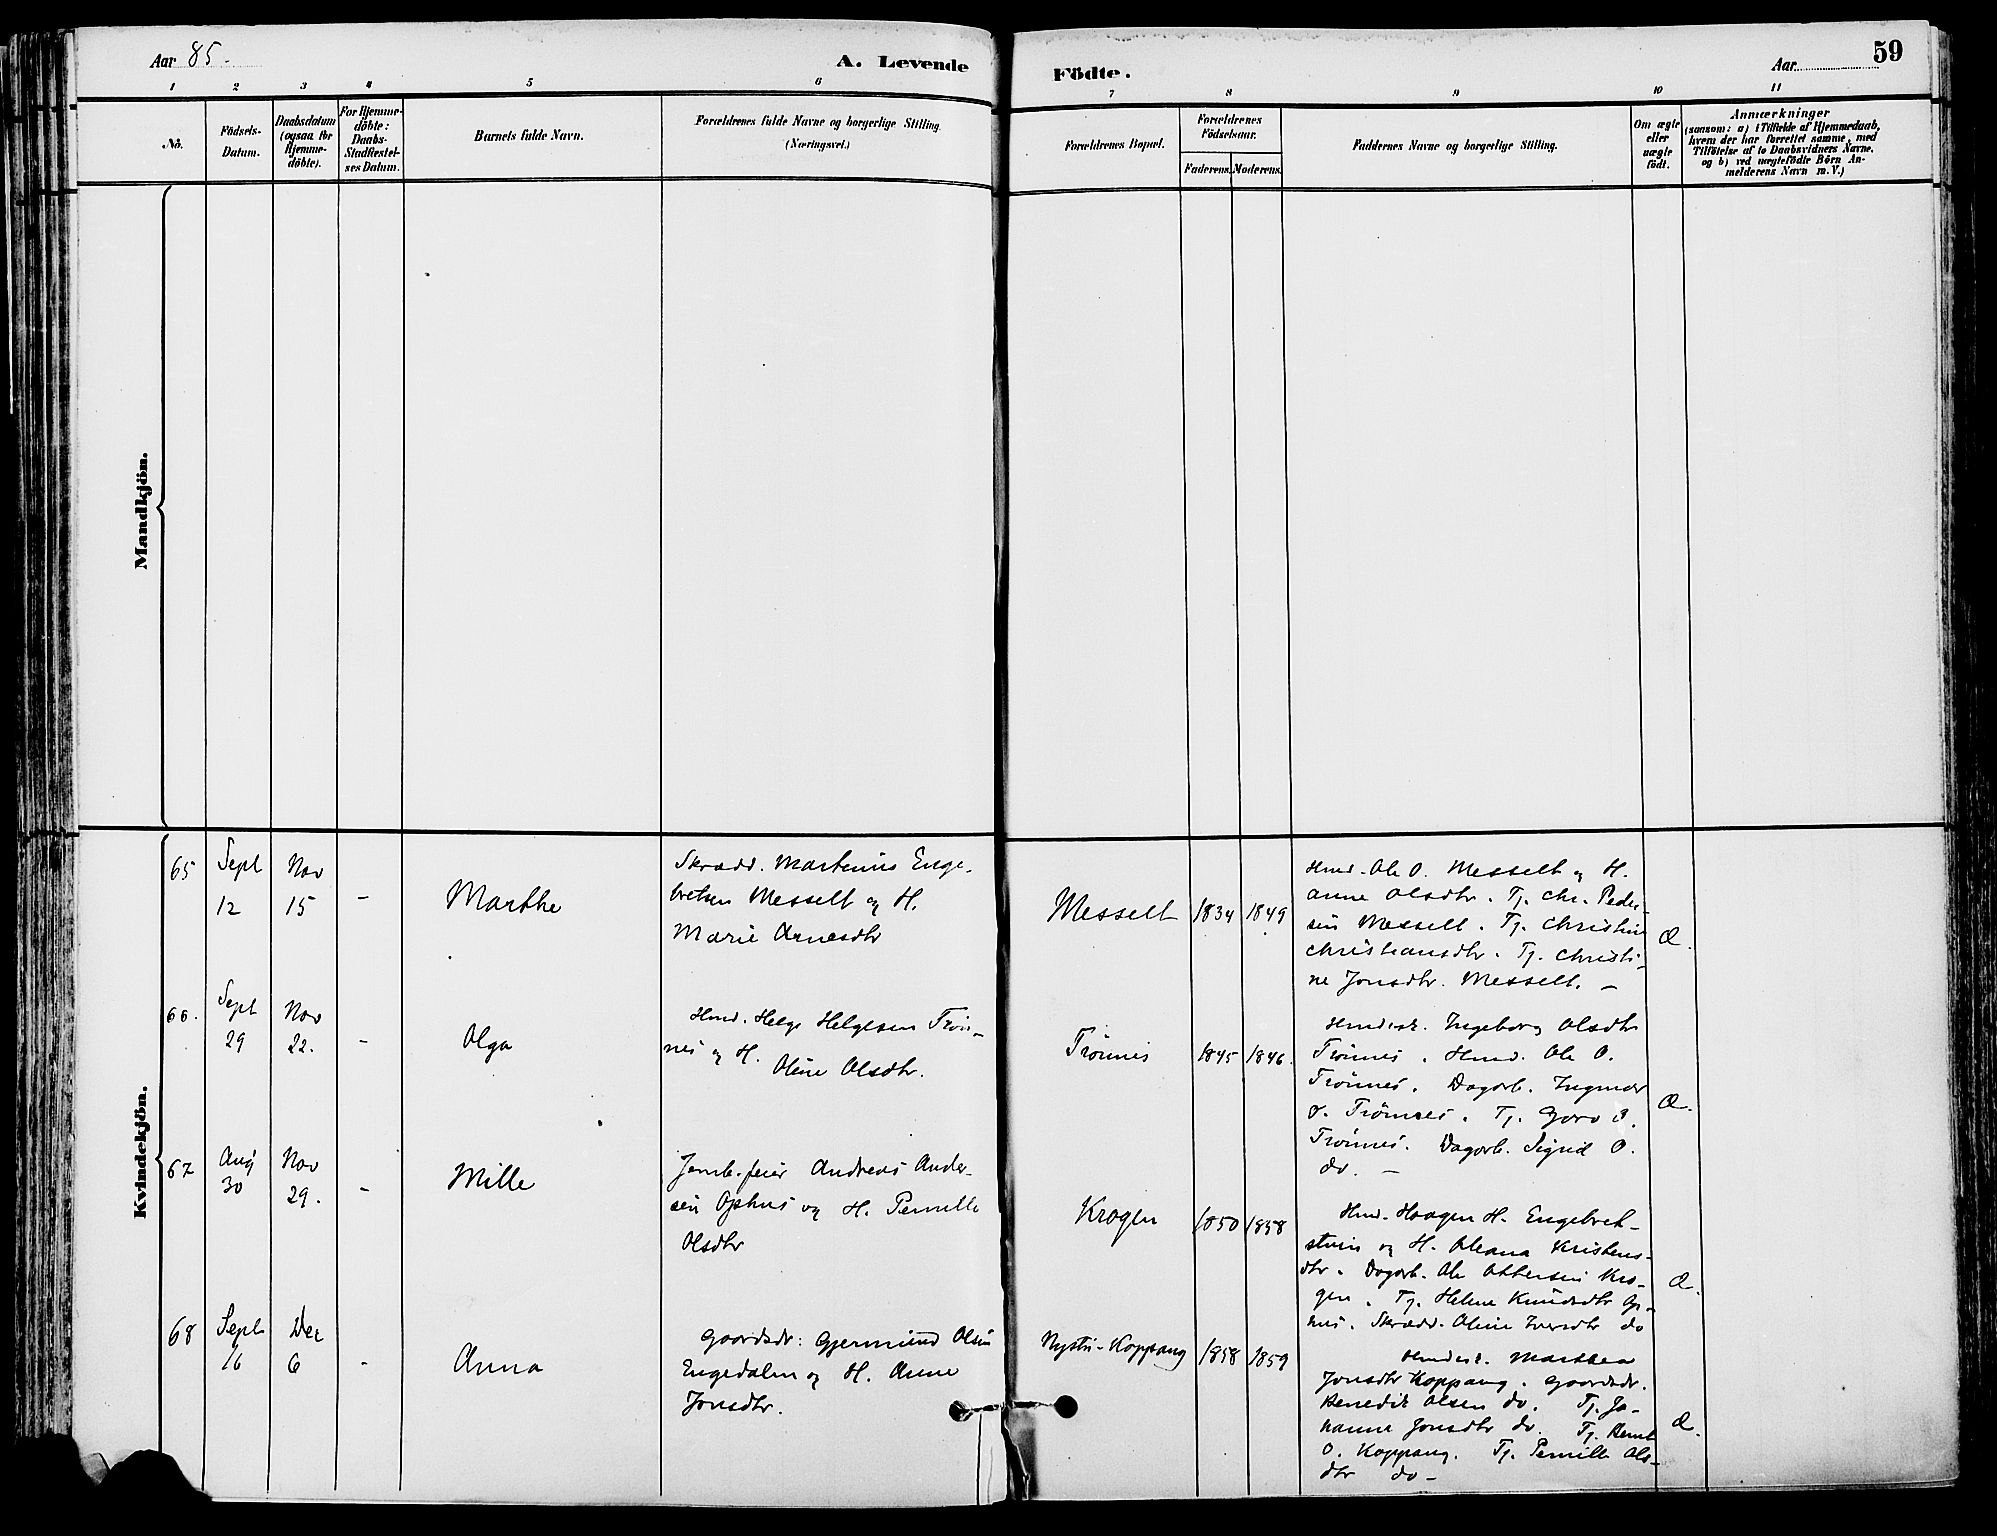 Aar 85.
A. Levende
Födte.
Aar
59
1 2 3 4 5 6 7 8 9 10 11
No.
Födsels-
Datum.
Daabsdatum
(ogsaa for
Hjemme-
döbte).
For Hjemme-
döbte:
Daabs-
Stadfæstel-
ses Datum.
Barnets fulde Navn.
Forældrenes fulde Navne og borgerlige Stilling.
(Næringsvei.)
Forældrenes Bopæl.
Forældrenes
Födselsaar.
Faderens. Moderens.
Faddernes Navne og borgerlige Stilling.
Om ægte
eller
uægte
födt.
Anmærkninger
(saasom: a) i Tilfælde af Hjemmedaab,
hvem der har forrettet samme, med
Tilföielse af to Daabsvidners Navne,
og b) ved uægtefödte Börn An-
melderens Navn m. V.)
Mandkjön.
Kvindekjön.
65
Sept
12
Nov
15
-
Marthe
Skrædd. Martinius Enge-
bretsen Messelt og H.
Marie Arnesdtr
Messelt
1834
1849
Hmd. Ole O. Messelt og H.
Anne Olsdtr. Tj. Chr. Peder-
sen Messelt. Tj. Christine
Christiansdtr. Tj. Christi-
ne Jonsdtr. Messelt. -
Æ.
66.
Sept
29
Nov
22.
-
Olga
Hmd. Helge Helgesen Trøn-
nes og H.
Oline Olsdtr.
Trønnes
1845
1846.
Hmdsk. Ingeborg Olsdtr
Trønnes. Hmd. Ole O.
Trønnes. Dagarb. Ingmar
O. Trønnes. Tj. Goro O.
Trønnes. Dagarb. Sigrid O.
do. -
Æ.
67
Aug
30
Nov
29.
-
Mille
Jernb. feier Andreas Ander-
sen Ophus og H. Pernille
Olsdtr
Krogen
1850
1858
Hmd. Haagen H. Engebret-
stuen og H. Oleana Kristens-
dtr. Dagarb. Ole Ottersen Kro-
gen. Tj. Helene Knudsdtr Op-
hus. Skrædd. Oline Iversdtr do
Æ.
68
Sept
16
Dec
6
-
Anna
Gaardsdr: Gjermund Olsen
Engedalen og H. Anne
Jonsdtr.
Nystu-Koppang
1858
1859
Hmdsk. Marthea
Jonsdtr Koppang. Gaardsdr.
Benedik Olsen do. Tj. Jo-
hanne Jonsdtr do. Tj. Bernt
O. Koppang. Tj. Pernille Ols-
dtr do -
Æ.